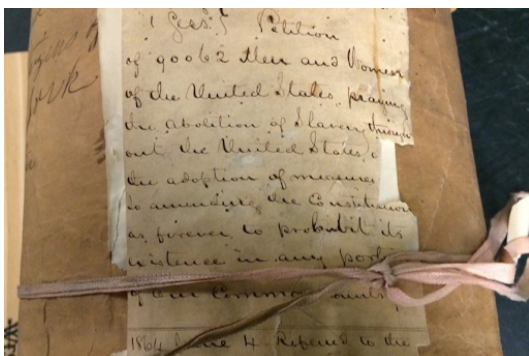 Petition
of 90062 Men and Women
of the United States, praying
the abolition of Slavery through
out the United States,
the adoption of measures
so amending the Constitution
as forever to prohibit its
existence in any
of our Common
1864 June 4. Refered to the